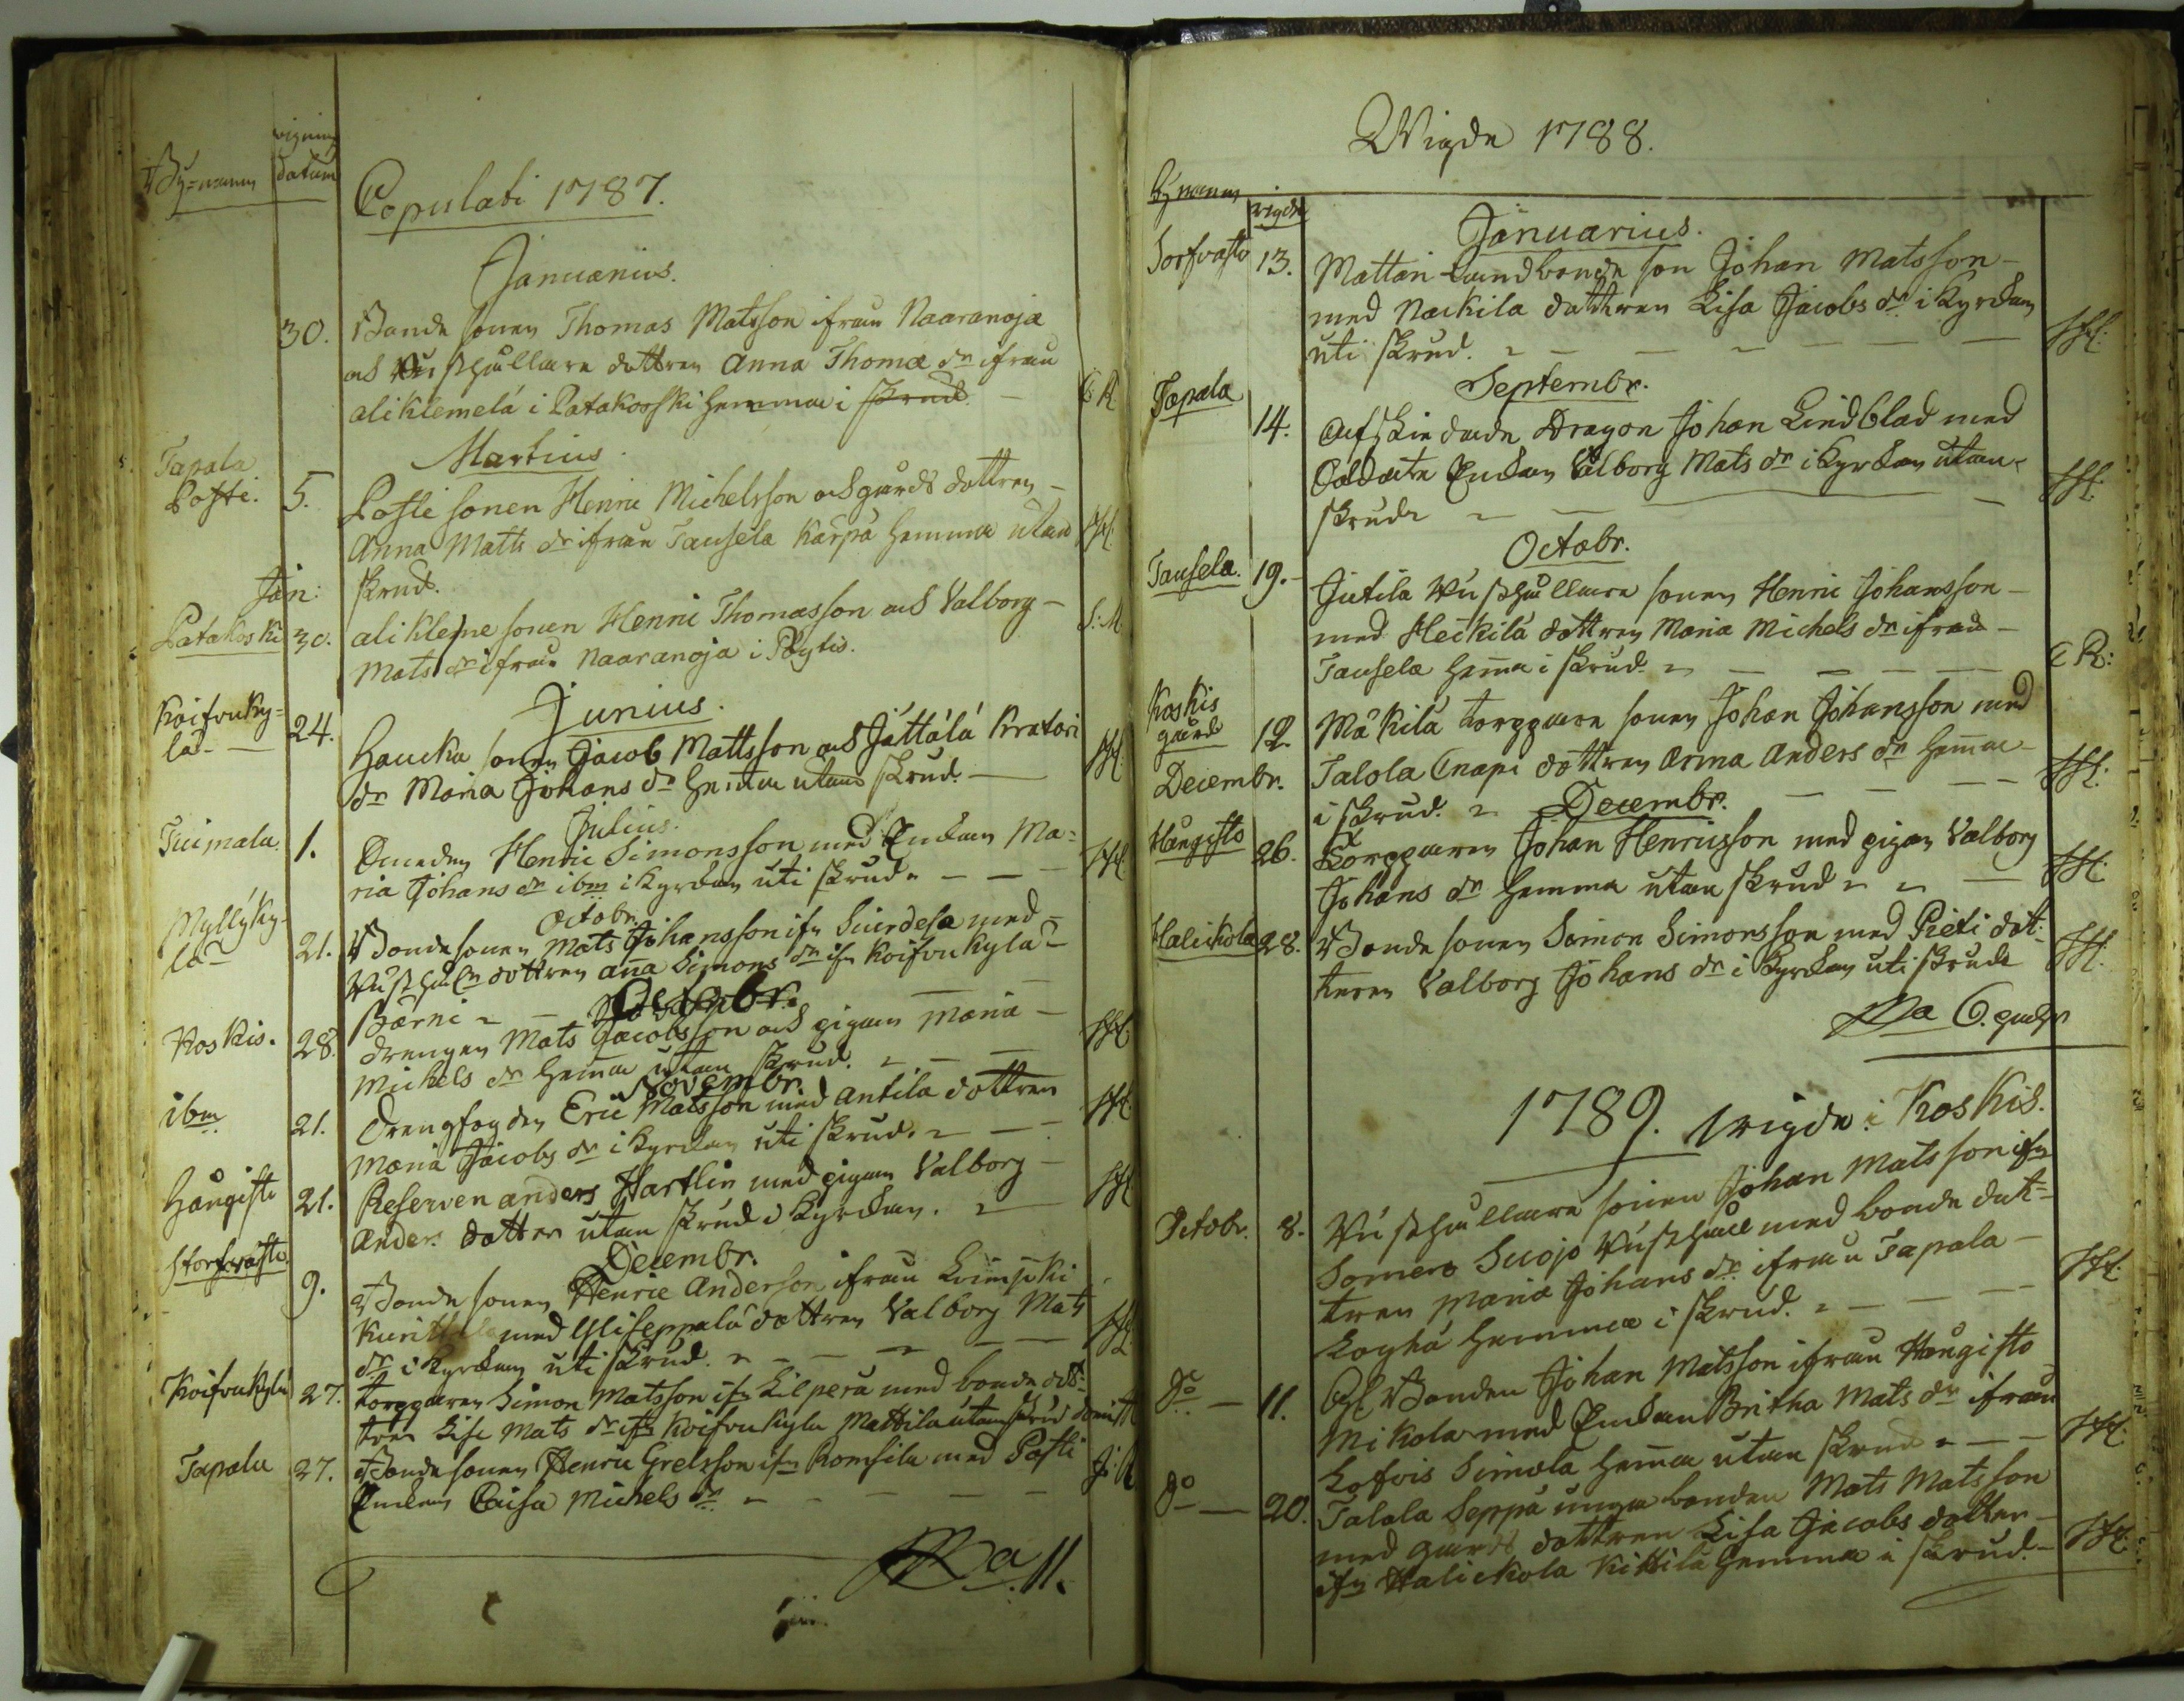 By=namn
vigning
datum
Copulati 1787.
Januarius.
30. Bonde sonen Thomas Matsson ifrån Naaranoja
och Rusthållare dottren Anna Thomæ dr ifrån
aliklemelä i Patakoski hemma i skrud. C. R.
Martius.
Tapala
Posti. 5. Posti sonen Henric Michelsson och gårds dottren
Anna Matts dr ifrån Tausela Karpa hemma utan
skrud.
Jan:
Patakoski 30. alikleme sonen Henric Thomasson och Valborg
Mats dr ifrån Naaranoja i Pÿtis. S. M.
Junius.
Koifvuky=
lä 24. Haucka sonen Jacob Mattsson och Jättälä
dr Maria Johans dr hemma utan skrud.
Julius.
Tuimala 1. Enckan Henric Simonsson med Enckan Ma=
ria Johans dr ibm i Kyrckan uti skrud.
Octobr.
Myllÿky=
lä 21. Bonde sonen Mats Johansson ifn Suerdesa med
dottren Aña Simons dr ifn Koifvukyla
Bærni
Octobr.
Koskis. 28. drengen Mats Jacobsson och pigan Maria
Michels dr hemma utan skrud.
Novembr.
ibm 21. Drengfogden Eric Matsson med Antila dottren
Maria Jacobs dr i Kyrckan uti skrud.
Håugisto 21. Reserven Anders Hartlin med pigan Valborg
Anders dotter utan skrud i Kyrckan.
Decembr.
Storfwasto 9. Bonde sonen Henric Anderson ifrån
med Yliseppälä dottren Valborg Mats
dr i Kyrckan uti skrud.
Koifvukylä 27. torpparen Simon Matsson ifn Kilpera med bonde dot=
tren Lisa Mats dr ifn Koifvukyla Mattila utan skrud
Tapala 27. Bonde sonen Henric Grelsson ifn Romsila med Posti
Enckan Caisa Michels dr
Sa 11.
Wigde 1788.
Bynamn
vigde
Januarius.
Sorfvasto 13. Mattari Landbonde son Johan Matsson
med Nackila dotteren Lisa Jacobs dr i Kyrckan
uti skrud.
Septembr.
Tapala 14. Afskedade Dragon Johan Lindblad med
Soldate Enckan Valborg Mats dr i Kyrckan utan
skrud
Octobr.
Tausela. 19. Jutila Rusthållare sonen Henric Johansson
med Heikilä dottren Maria Michels dr ifrån
Tausela hemma i skrud. C. R:
Koskis
gård 12. Mäkilä torppare sonen Johan Johansson med
Decembr. Talola Cnapi dottren Anna Anders dr hemma
i skrud.
Decembr.
Håugisto 26. Torpparen Johan Henricsson med pigan Valborg
Johans dr hemma utan skrud
Halickola 28. Bonde sonen Simon Simonsson med Pieti dot=
teren Valborg Johans dr i Kyrckan uti skrud
Sa 6.
1789. wigde i Koskis.
Octobr. 8. Rusthållare sonen Johan Matsson ifn
Somero Suojo Rusthåll med bonde dot=
tren Maria Johans dr ifrån Tapala
hemma i skrud.
Do 11. Gl. Bonden Johan Matsson ifrån Håugisto
Mikola med Enckan Britha Mats dr ifrån
Simola hemma utan skrud
Do 20. Talola Seppä unga bonden Mats Matsson
med gårds dottren Lisa Jacobs dotter
ifn Halickola Kittilä hemma i skrud.